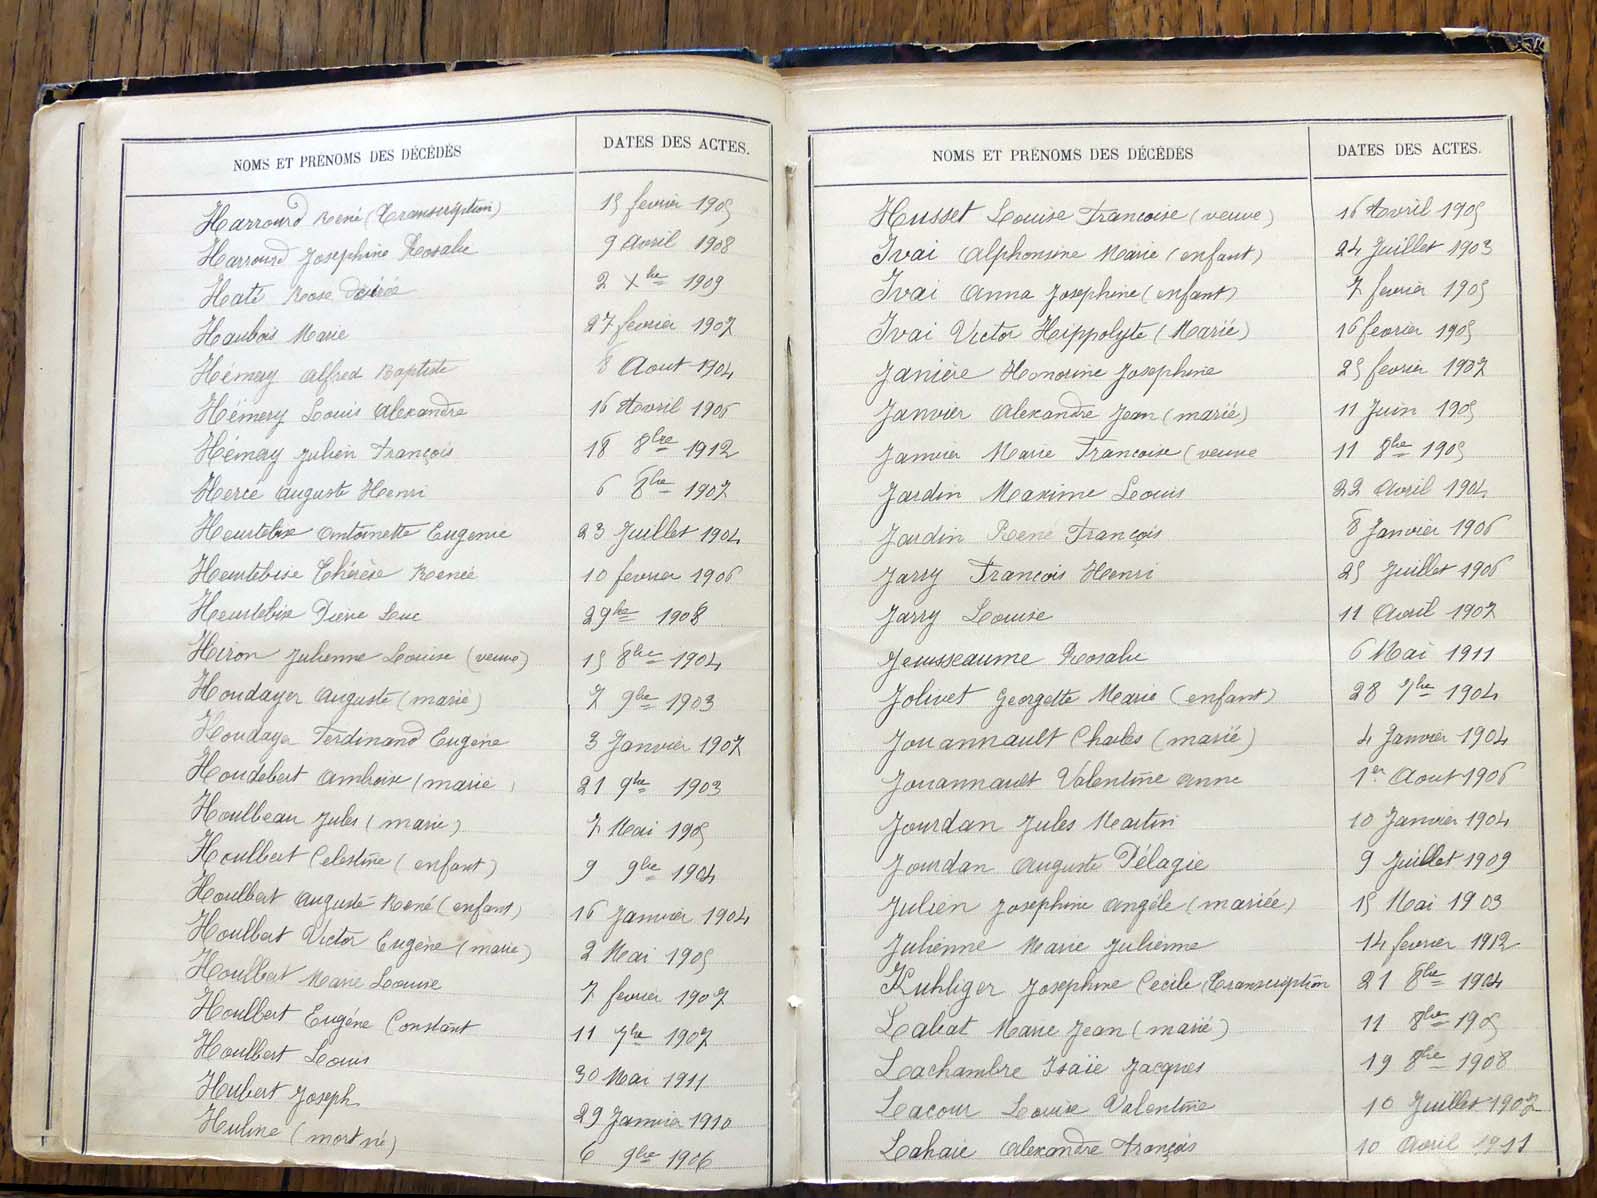 NOMS ET PRÉNOMS DES DÉCÉDÉS DATES DES ACTES.
Harrourd René (Transcription) 15 fevrier 1905
Harrourd Josephine Rosalie 9 Avril 1908
Haté Rose Désirée 2 Xbre 1909
Haubois Marie 27 fevrier 1907
Hémery Alfred Baptiste 8 Aout 1904
Hémery Louis Alexandre 16 Avril 1906
Hémery Julien François 18 8bre 1912
Hercé Auguste Henri 6 8bre 1907
Heurtebise Antoinette Eugenie 23 Juillet 1904
Heurtebise Thérèse Renée 10 fevrier 1906
Heurtebise Pierre Luc 29bre 1908
Hiron Julienne Louise (veuve) 15 8bre 1904
Houdayer Auguste (marié) 7 9bre 1903
Houdayer Ferdinand Eugène 3 Janvier 1907
Houdebert Ambroise (marié) 21 9bre 1903
Houlbeau Jules (marié) 7 Mai 1905
Houlbert Celestine (enfant) 9 9bre 1904
Houlbert Auguste René (enfant) 16 Janvier 1904
Houlbert Victor Eugène (marié) 2 Mai 1905
Houlbert Marie Louise 7 fevrier 1907
Houlbert Eugéne Constant 11 7bre 1907
Houlbert Louis 30 Mai 1911
Hubert Joseph 29 Janvier 1910
Huline (mort né) 6 9bre 1906
NOMS ET PRÉNOMS DES DÉCÉDÉS DATES DES ACTES.
Husset Louise Francoise (veuve) 16 Avril 1905
Ivai Alphonsine Marie (enfant) 24 Juillet 1903
Ivai Anna Josephine (enfant) 7 fevrier 1905
Ivai Victor Hippolyte (Marié) 16 fevrier 1905
Janière Honorine Josephine 25 fevrier 1907
Janvier Alexandre Jean (marié) 11 Juin 1905
Janvier Marie Francoise (veuve 11 8bre 1905
Jardin Maxime Louis 22 Avril 1904
Jardin René François 8 Janvier 1906
Jarry François Henri 25 Juillet 1906
Jarry Louise 11 Avril 1907
Jeusseaume Rosalie 6 Mai 1911
Jolivet Georgette Marie (enfant) 28 7bre 1904
Jouannault Charles (marié) 4 Janvier 1904
Jouannault Valentine Anne 1er Aout 1906
Jourdan Jules Martin 10 Janvier 1904
Jourdan Auguste Pélagie 9 Juillet 1909
Julien Josephine Angèle (mariée) 15 Mai 1903
Julienne Marie Julienne 14 fevrier 1912
Kuhliger Josephine Cecile (Transcription 21 8bre 1904
Labat Marie Jean (marié) 11 8bre 1905
Lachambre Isaïe Jacques 19 8bre 1908
Lacour Louise Valentine 10 Juillet 1907
Lahaie Alexandre François 10 Avril 1911